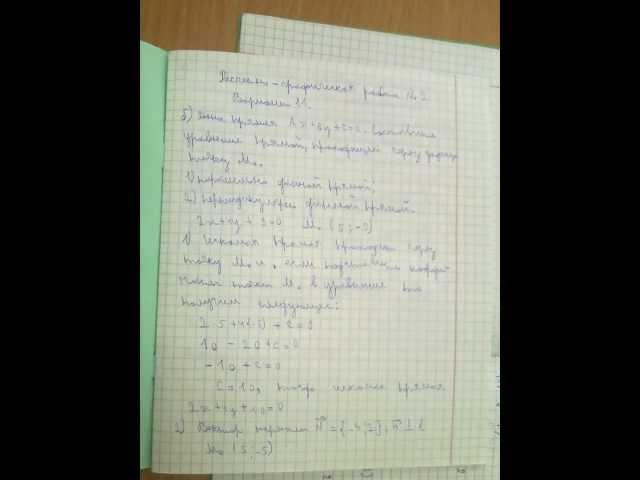 Расчетно-графическая работа № 2
Вариант 11.
б) Дана прямая Ax+By+C=0. Составить
уравнение прямой, проходящей через
точку M₀.
1) параллельно данной прямой;
2) перпендикулярно данной прямой.
2x+4y+3=0 M₀ (5;-5)
1) Искомая прямая проходит через
точку M₀ и если подставить
точки M₀ в уравнение то
получим следующее:
2·5+4(-5)+C=0
10-20+C=0
-10+C=0
C=10, тогда искомая прямая
2x+4y+10=0
2) Вектор нормали N⃗={-4;2}, n⃗⊥l
M₀ (5;-5)